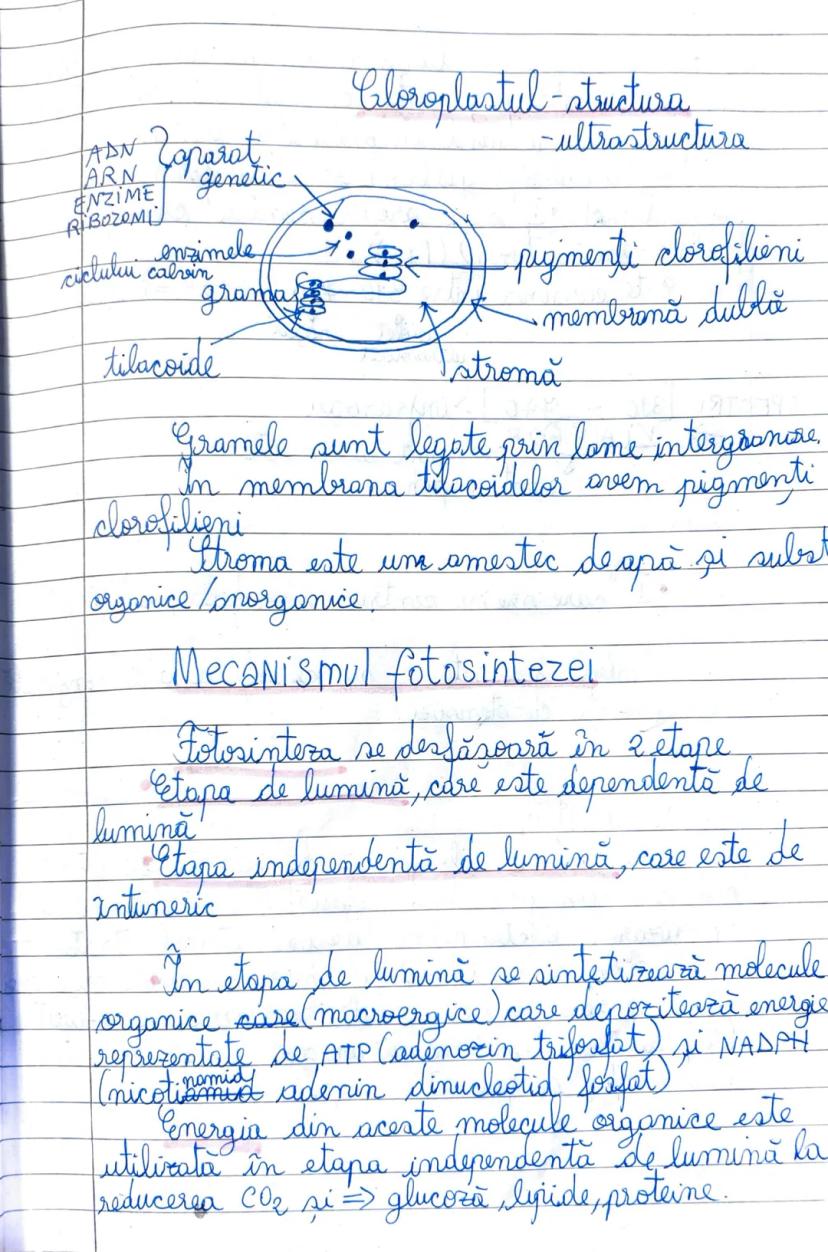 Cloroplastul-structura
-ultrastructura
ADN
ARN
ENZIME
RIBOZOMI
aparat
genetic
enzimele
ciclului calvin
grama
tilacoide
pigmenți clorofilieni
membrană dublă
stromă
Gramele sunt legate prin lame intergranare.
În membrana tilacoidelor avem pigmenți
clorofilieni
Stroma este un amestec de apă și subst
organice/anorganice.
Mecanismul fotosintezei
Fotosinteza se desfășoară în 2 etape
Etapa de lumină, care este dependentă de
lumină
Etapa independentă de lumină, care este de
întuneric
În etapa de lumină se sintetizează molecule
organice care (macroergice) care depozitează energie
reprezentate de ATP (adenozin trifosfat) și NADPH
(nicotinamid adenin dinucleotid fosfat)
Energia din aceste molecule organice este
utilizată în etapa independentă de lumină la
reducerea CO₂ și => glucoză, lipide, proteine.